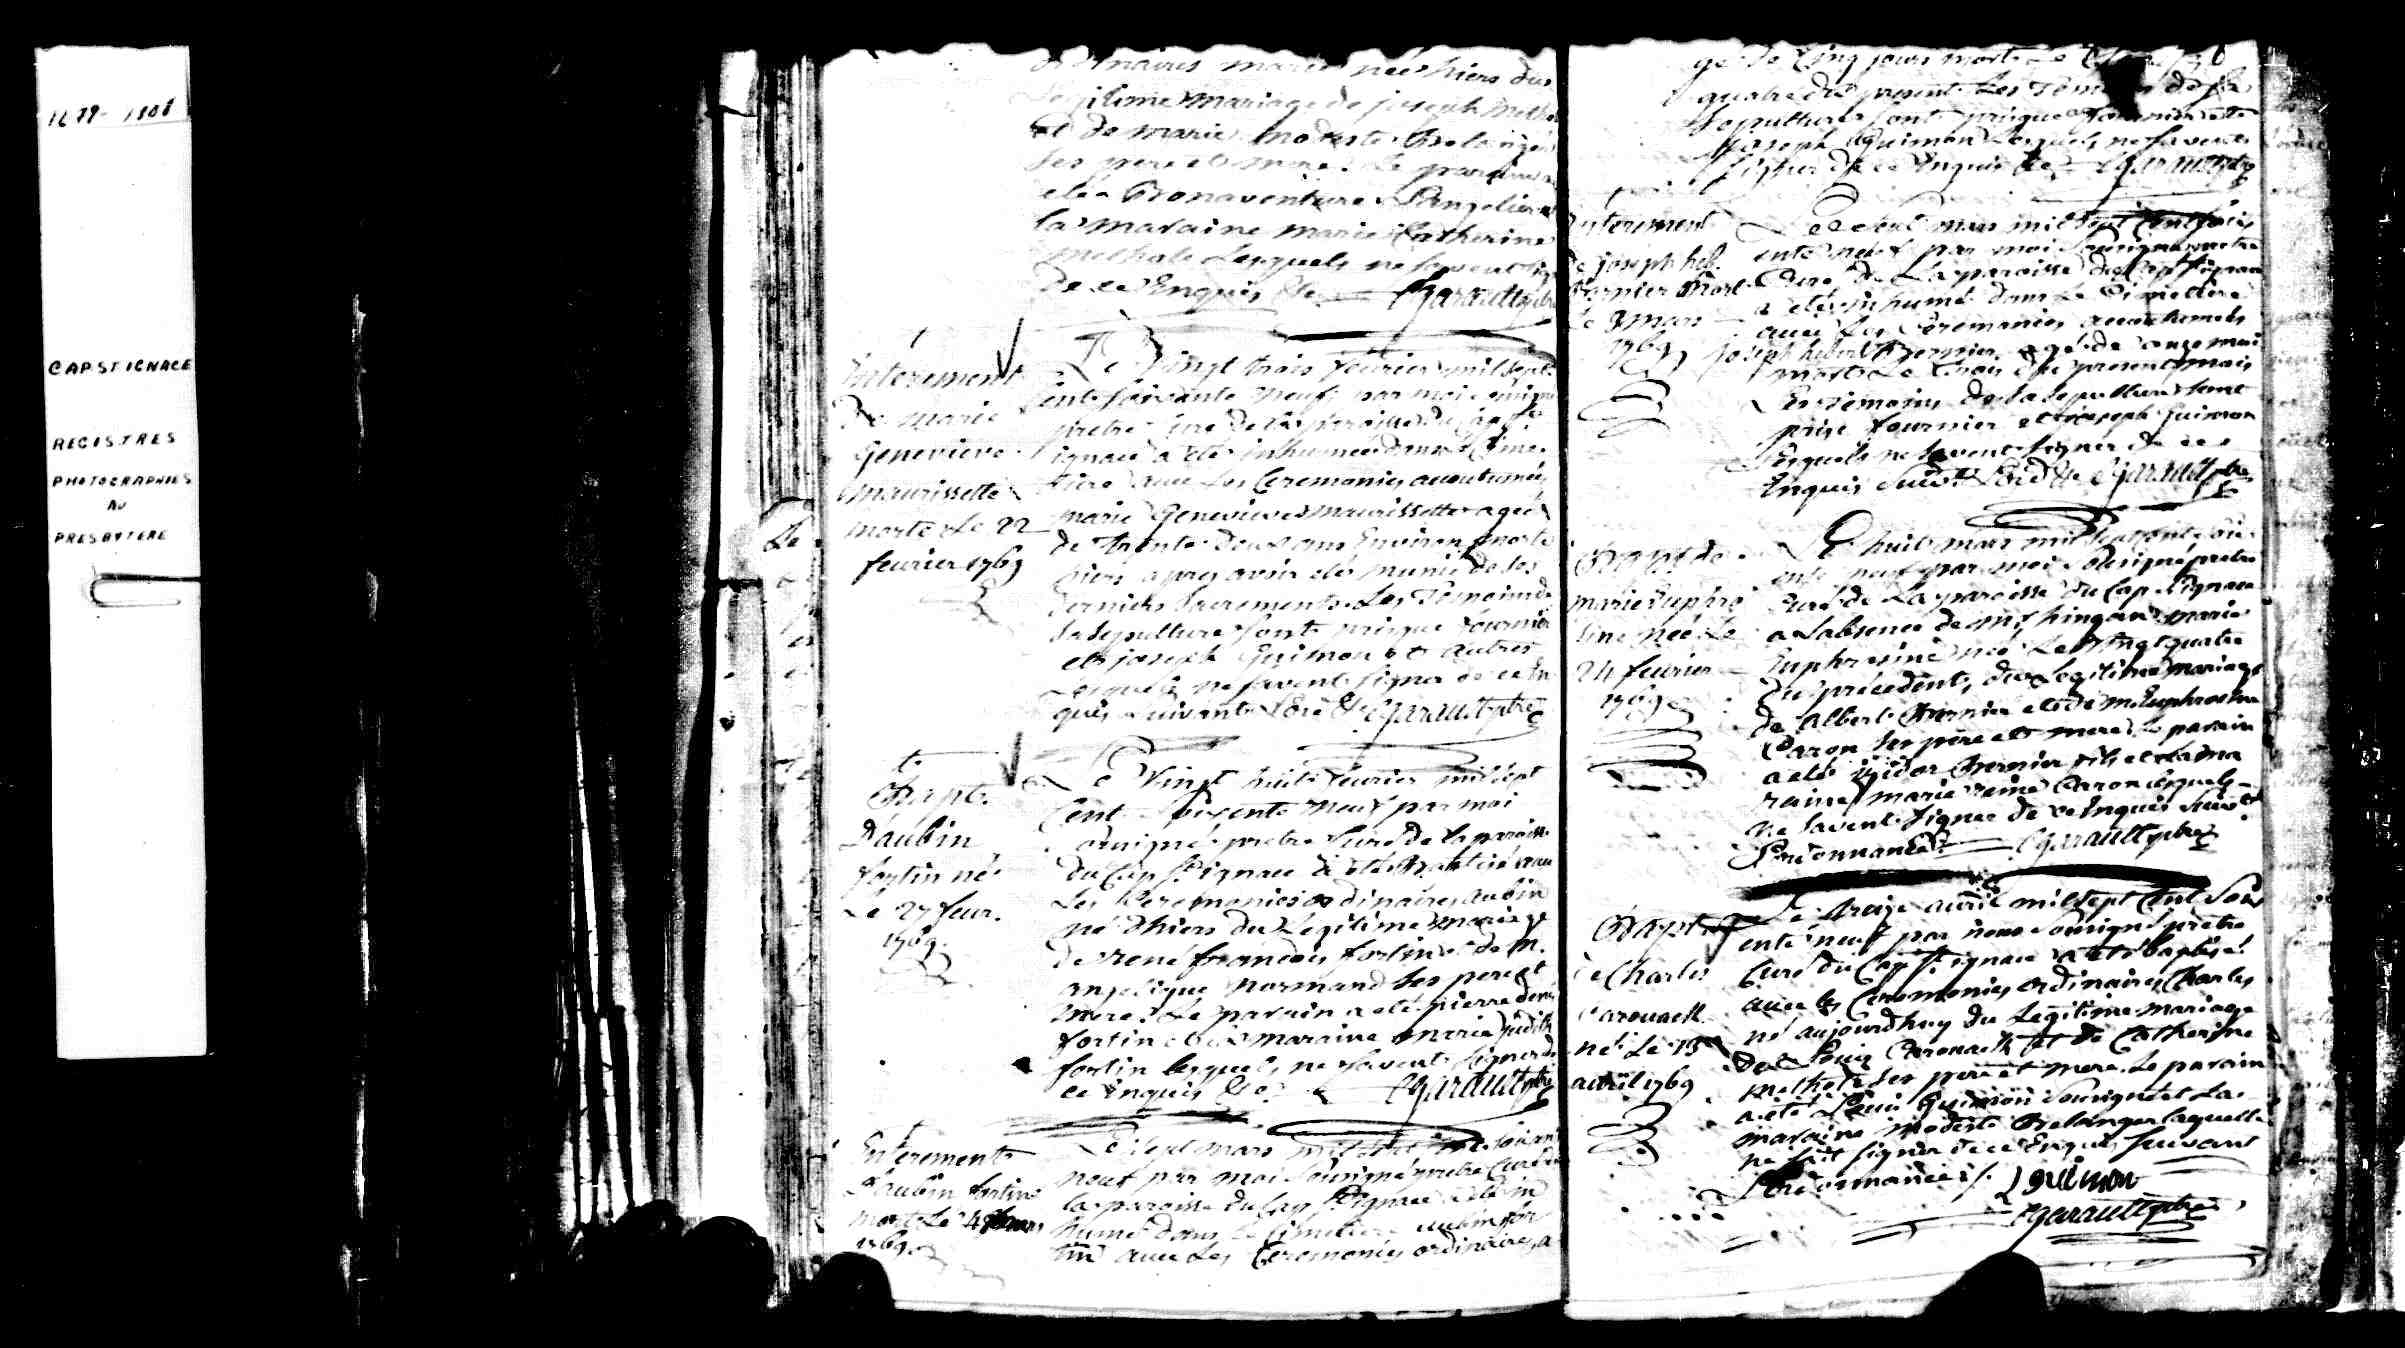 1679-1808
CAP ST IGNACE
REGISTRES
PHOTOGRAPHIES
AU
PRESBYTERE
Le
ordinaires marie née hiers du
Legitime mariage de joseph
et de marie modeste Belanger
ses pere et mere. Le parain a
eté Bonaventure Langelier et
la maraine marie Catherine
methote Lesquels ne savent sign
de ce Enquis &c CGaraultptre
Enterement
De marie
Genevieve
maurissette
morte Le 22
fevrier 1769
Le Vingt trois fevrier mil sept
cent soixante neuf par moi souigné
pretre Curé de la paroisse du Cap St
ignace a été inhumée dans le Cime
tiere avec Les Ceremonies accoutumées
marie Genevieve maurissette agée
de trente deux ans Environ morte
hiers apres avoir eté munie de ses
derniers Sacrements. Les Temoins de
sa sepulture sont prisque fournier
et joseph Guimon et autres
Lesquels ne savent signer de ce En
quis suivant L'ord &c CGaraultptre
Bapt.
D'aubin
fortin né
Le 27 fevr.
1769.
Le Vingt huit fevrier mil sept
Cent soixente neuf par moi
souigné pretre Curé de la paroisse
du Cap St ignace a eté Baptisé avec
Les Ceremonies ordinaires aubin
né d'hiers du Legitime mariage
de rené francois fortin et de m.
angelique normand ses pere et
mere. Le parain a eté pierre
fortin et la maraine marie judith
fortin lesquels ne savent signer de
ce Enquis &c CGaraultptre
Enterement
D'aubin fortin
mort Le 4 mars
1769
Le sept mars mil sept cent soixante
neuf par moi souigné pretre Curé de
la paroisse du Cap St Ignace a eté in
humé dans le Cimetiere aubin for
tin avec Les Ceremonies ordinaires a
gé de Cinq jours mort Le
quatre du present Les Temoins de sa
sepulture sont prisque fournier et
joseph Guimon Lesquels ne savent
signer de ce Enquis &c CGaraultptre
Enterement
De joseph heb.
Bernier mort
Le 3 mars
1769
Le sept mars mil sept Cent soix
ente neuf par moi souigné pretre
Curé de La paroisse du Cap St ignace
a eté inhumé dans Le Cimetiere
avec Les Ceremonies accoutumées
joseph hebert Bernier agé de onze mois
mort Le trois du present mois
Les Temoins de sa sepulture sont
prisq fournier et joseph Guimon
Lesquels ne savent signer de ce
Enquis suivt L'ord &c CGaraultptre
Bapt de
marie Euphro
sine née Le
24 fevrier
1769
Le huit mars mil sept cent soix
ente neuf par moi souigné pretre
Curé de La paroisse du Cap St Ignace
a L'absence de mr hingan marie
Euphrosine née Le Vingt quatre
du précédent, du Legitime mariage
de albert Bernier et de m. Euphrosine
Caron ses pere et mere Le parain
a eté isidor Bernier fils et la ma
raine marie reine Caron Lesquels
ne savent signer de ce Enquis suivt
L'ordonnance CGaraultptre
Bapt.
de Charles
né Le 13
avril 1769
Le treize avril mil sept Cent soix
ente neuf par nous souigné pretre
Curé du Cap St ignace a eté baptisé
avec les Ceremonies ordinaires Charles
né aujourdhuy du Legitime mariage
De Louis et de Catherine
methote ses pere et mere. Le parain
a eté Louis Guimon souigné et La
maraine modeste Belanger laquelle
ne sait signer de ce Enquis suivant
L'ordonnance /. Lguimon
CGaraultptre